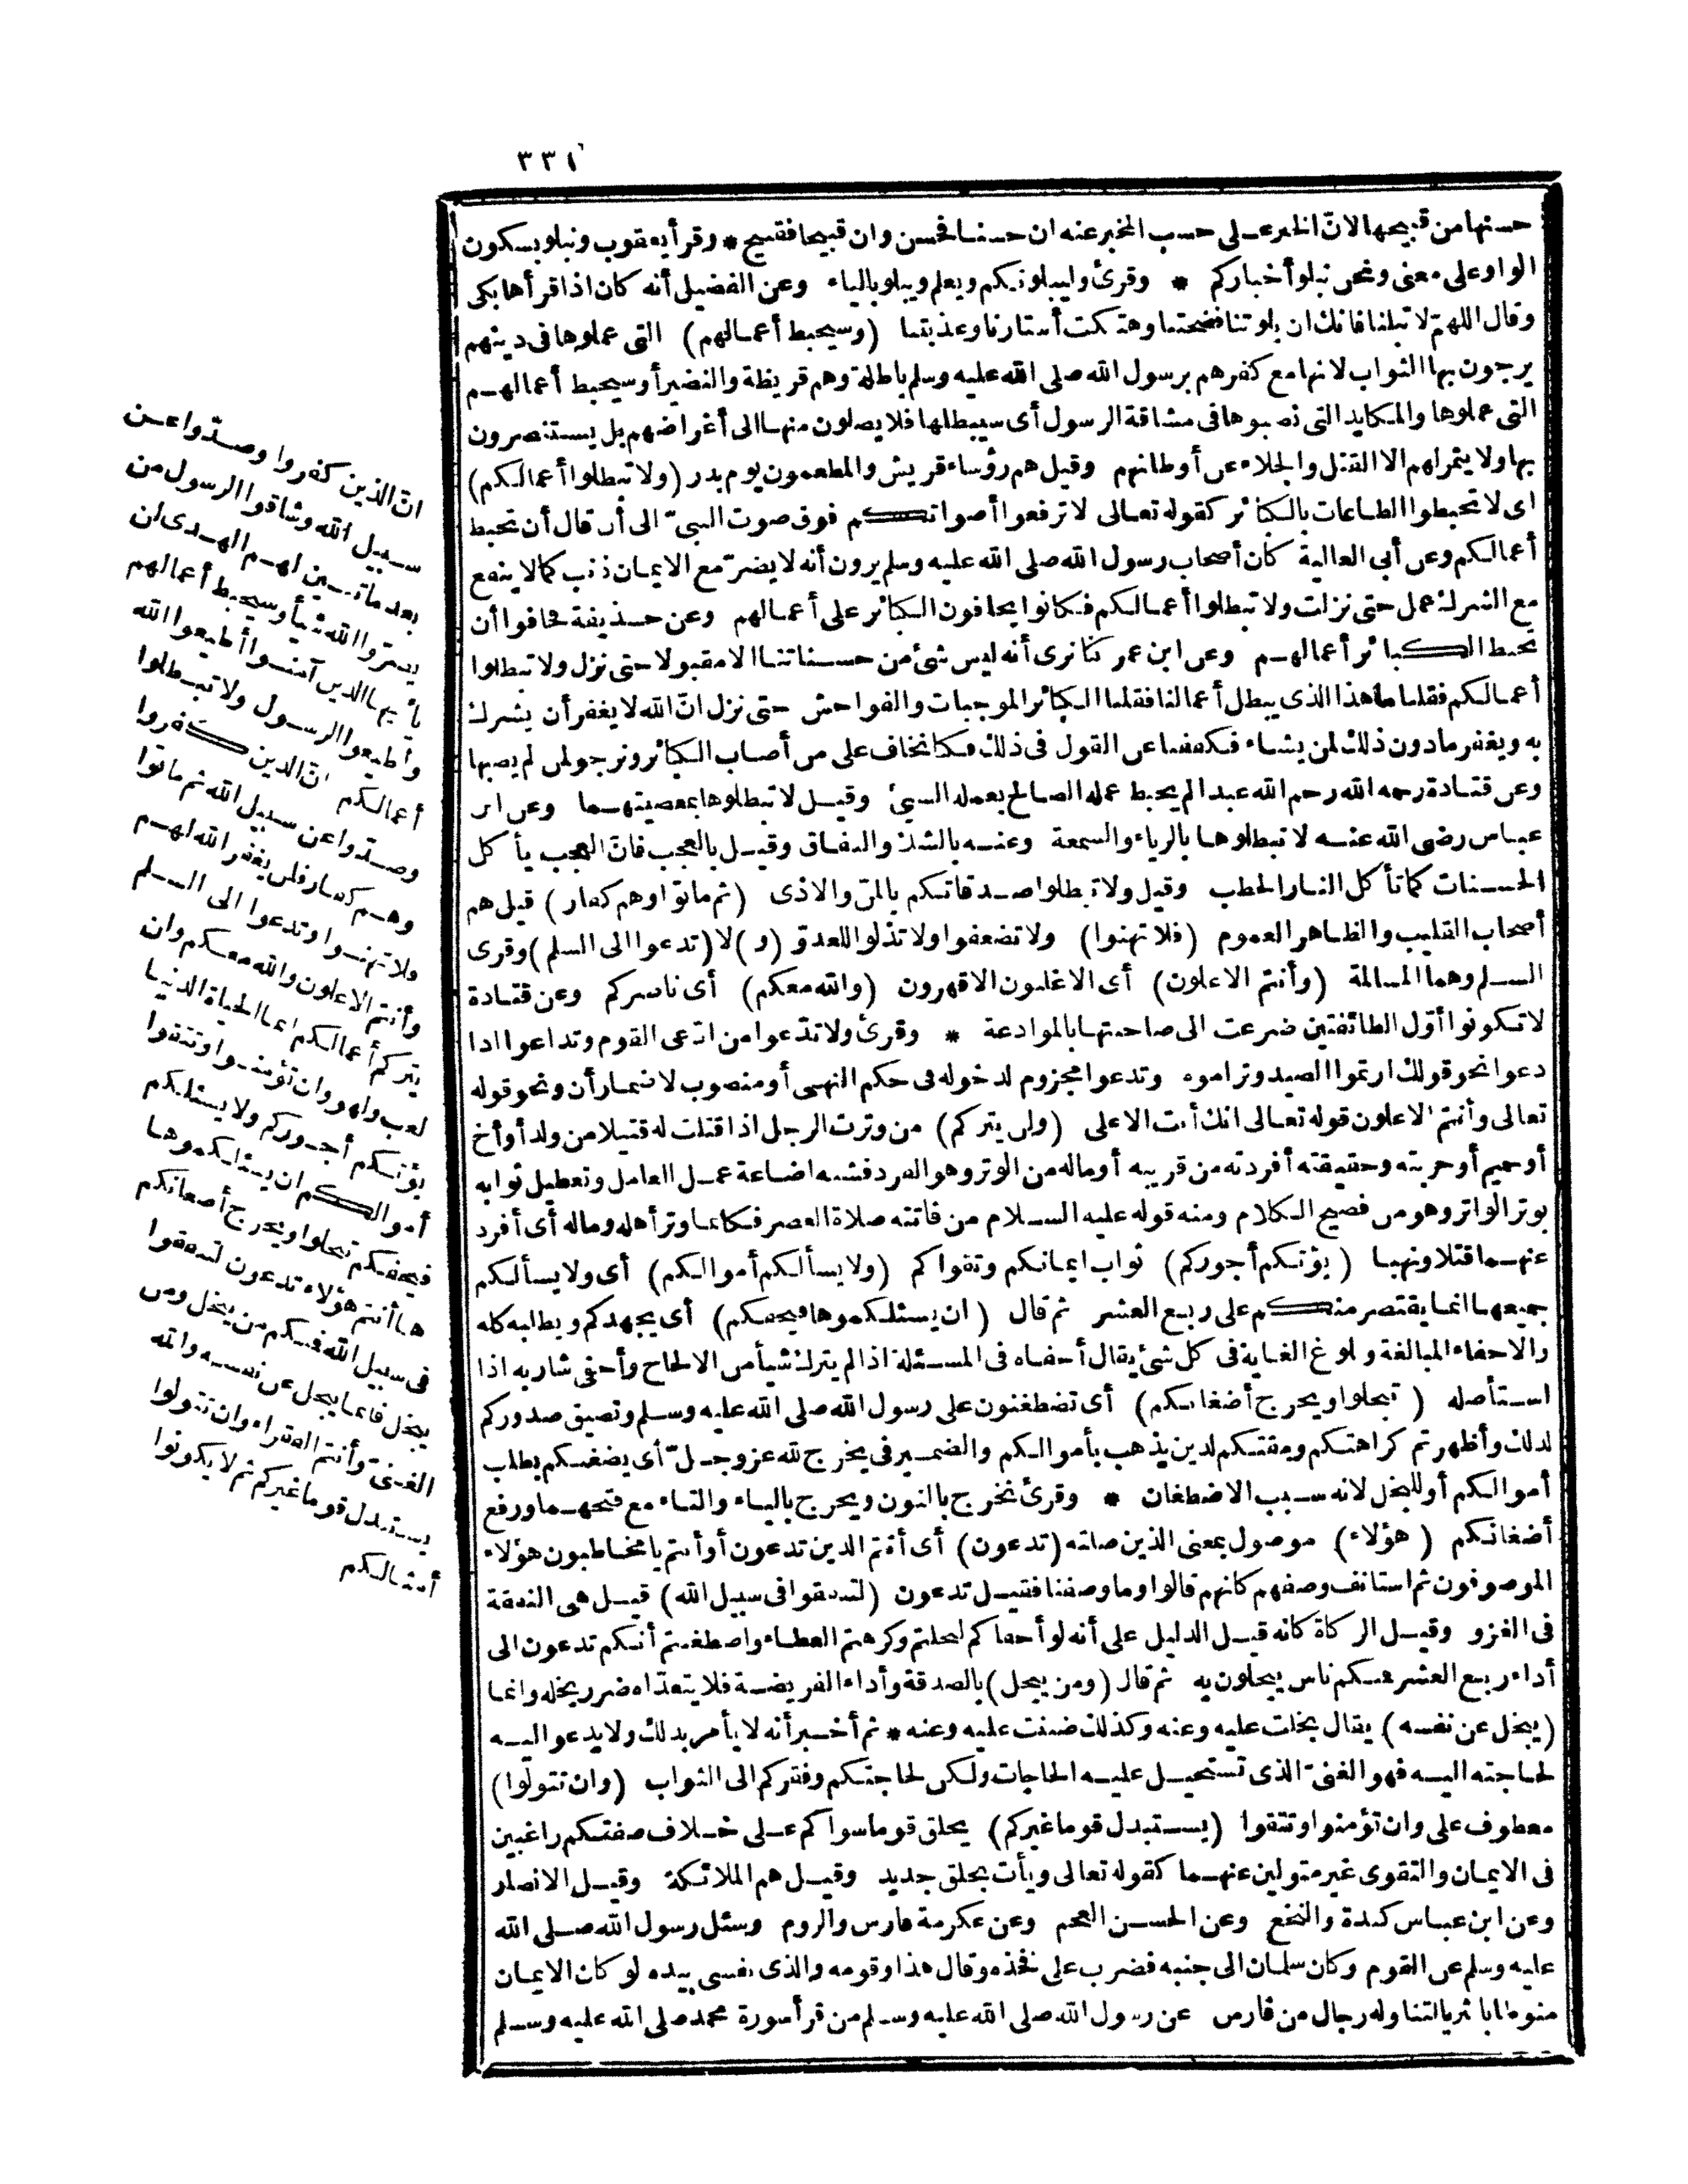 ٣٣١
حسنها من قبيحها لانّ الخبر على حسب المخبر عنه ان حسنا فحسن وان قبيحا فقبيح * وقرأ يعقوب ونبلو بسكون
الواو على معنى ونحن نبلو أخباركم * وقرئ وليبلونكم ويعلم ويبلو بالياء وعن الفضيل أنه كان اذا قرأها بكى
وقال اللهمّ لا تبلنا فانك ان بلوتنا فضحتنا وهتكت أستارنا وعذبتنا (وسيحبط أعمالهم) التى عملوها فى دينهم
يرجون بها الثواب لانها مع كفرهم برسول الله صلى الله عليه وسلم باطلة وهم قريظة والنضير أو سيحبط أعمالهم
التى عملوها والمكايد التى نصبوها فى مشاقة الرسول أى سيبطلها فلا يصلون منها الى أغراضهم بل يستنصرون
بها ولا يثمر لهم الا القتل والجلاء عن أوطانهم وقيل هم رؤساء قريش والمطعمون يوم بدر (ولا تبطلوا أعمالكم)
اى لا تحبطوا الطاعات بالكبائر كقوله تعالى لا ترفعوا أصواتكم فوق صوت النبىّ الى أن قال أن تحبط
أعمالكم وعن أبى العالية كان أصحاب رسول الله صلى الله عليه وسلم يرون أنه لا يضرّ مع الايمان ذنب كما لا ينفع
مع الشرك عمل حتى نزلت ولا تبطلوا أعمالكم فكانوا يخافون الكبائر على أعمالهم وعن حذيفة فخافوا أن
تحبط الكبائر أعمالهم وعن ابن عمر كنا نرى أنه ليس شئ من حسناتنا الا مقبولا حتى نزل ولا تبطلوا
أعمالكم فقلنا ما هذا الذى يبطل أعمالنا فقلنا الكبائر الموجبات والفواحش حتى نزل انّ الله لا يغفر أن يشرك
به ويغفر ما دون ذلك لمن يشاء فكففنا عن القول فى ذلك فكنا نخاف على من أصاب الكبائر ونرجو لمن لم يصبها
وعن قتادة رحمه الله رحم الله عبدا لم يحبط عمله الصالح بعمله السيئ وقيل لا تبطلوها بمعصيتهما وعن ابن
عباس رضى الله عنه لا تبطلوها بالرياء والسمعة وعنه بالشك والنفاق وقيل بالعجب فانّ العجب يأكل
الحسنات كما تأكل النار الحطب وقيل ولا تبطلوا صدقاتكم بالمنّ والاذى (ثم ماتوا وهم كفار) قيل هم
أصحاب القليب والظاهر العموم (فلا تهنوا) ولا تضعفوا ولا تذلوا للعدوّ (و) لا (تدعوا الى السلم) وقرى
السلم وهما المسالمة (وأنتم الاعلون) أى الاغلبون الاقهرون (والله معكم) أى ناصركم وعن قتادة
لا تكونوا أوّل الطائفتين ضرعت الى صاحبتها بالموادعة * وقرئ ولا تدّعوا من ادّعى القوم وتداعوا اذا
دعوا نحو قولك ارتموا الصيد وتراموه وتدعوا مجزوم لدخوله فى حكم النهى أو منصوب لاضمار أن ونحو قوله
تعالى وأنتم الاعلون قوله تعالى انك أنت الاعلى (ولن يتركم) من وترت الرجل اذا قتلت له قتيلا من ولد أو أخ
أو حميم أو حربته وحقيقته أفردته من قريبه أو ماله من الوتر وهو الفرد فشبه اضاعة عمل العامل وتعطيل ثوابه
بوتر الواتر وهو من فصيح الكلام ومنه قوله عليه السلام من فاتته صلاة العصر فكانما وتر أهله وماله أى أفرد
عنهما قتلا ونهبا (يؤتكم أجوركم) ثواب ايمانكم وتقواكم (ولا يسألكم أموالكم) أى ولا يسألكم
جميعها انما يقتصر منكم على ربع العشر ثم قال (ان يسئلكموها فيحفكم) أى يجهدكم ويطلبه كله
والاحفاء المبالغة وبلوغ الغاية فى كل شئ يقال أحفاه فى المسئلة اذا لم يترك شيأ من الالحاح وأحفى شاربه اذا
استأصله (تبخلوا ويخرج أضغانكم) أى تضطغنون على رسول الله صلى الله عليه وسلم وتضيق صدوركم
لذلك وأظهرتم كراهتكم ومقتكم لدين يذهب بأموالكم والضمير فى يخرج لله عز وجلّ أى يضغنكم بطلب
أموالكم أو للبخل لانه سبب الاضطغان * وقرئ نخرج بالنون ويخرج بالياء والتاء مع فتحهما ورفع
أضغانكم (هؤلاء) موصول بمعنى الذين صلته (تدعون) أى أنتم الذين تدعون أو أنتم يا مخاطبون هؤلاء
الموصوفون ثم استانف وصفهم كانهم قالوا وما وصفنا فقيل تدعون (لتنفقوا فى سبيل الله) قيل هى النفقة
فى الغزو وقيل الزكاة كانه قيل الدليل على أنه لو أحفاكم لبخلتم وكرهتم العطاء واضطغنتم أنكم تدعون الى
أداء ربع العشر فمنكم ناس يبخلون به ثم قال (ومن يبخل) بالصدقة وأداء الفريضة فلا يتعدّاه ضرر بخله وانما
(يبخل عن نفسه) يقال بخلت عليه وعنه وكذلك ضننت عليه وعنه * ثم أخبر أنه لا يأمر بذلك ولا يدعو اليه
لحاجته اليه فهو الغنىّ الذى تستحيل عليه الحاجات ولكن لحاجتكم وفقركم الى الثواب (وان تتولوا)
معطوف على وان تؤمنوا وتتقوا (يستبدل قوما غيركم) يخلق قوما سواكم على خلاف صفتكم راغبين
فى الايمان والتقوى غير متولين عنهما كقوله تعالى ويأت بخلق جديد وقيل هم الملائكة وقيل الانصار
وعن ابن عباس كندة والنخع وعن الحسن العجم وعن عكرمة فارس والروم وسئل رسول الله صلى الله
عليه وسلم عن القوم وكان سلمان الى جنبه فضرب على فخذه وقال هذا وقومه والذى نفسى بيده لو كان الايمان
منوطا بالثريا لتناوله رجال من فارس عن رسول الله صلى الله عليه وسلم من قرأ سورة محمد صلى الله عليه وسلم
انّ الذين كفروا وصدّوا عن
سبيل الله وشاقوا الرسول من
بعد ما تبين لهم الهدى لن
يضرّوا الله شيأ وسيحبط أعمالهم
يأيها الذين آمنوا أطيعوا الله
وأطيعوا الرسول ولا تبطلوا
أعمالكم انّ الذين كفروا
وصدّوا عن سبيل الله ثم ماتوا
وهم كفار فلن يغفر الله لهم
فلا تهنوا وتدعوا الى السلم
وأنتم الاعلون والله معكم ولن
يتركم أعمالكم انما الحياة الدنيا
لعب ولهو وان تؤمنوا وتتقوا
يؤتكم أجوركم ولا يسئلكم
أموالكم ان يسئلكموها
فيحفكم تبخلوا ويخرج أضغانكم
ها أنتم هؤلاء تدعون لتنفقوا
فى سبيل الله فمنكم من يبخل ومن
يبخل فانما يبخل عن نفسه والله
الغنىّ وأنتم الفقراء وان تتولوا
يستبدل قوما غيركم ثم لا يكونوا
أمثالكم